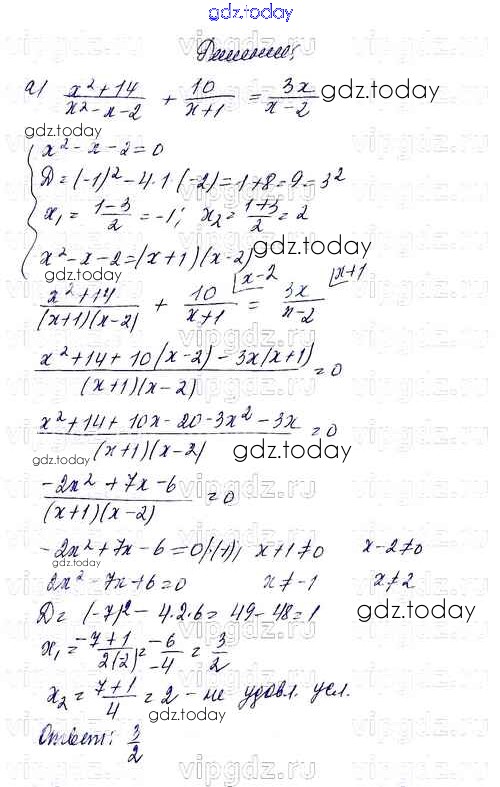 gdz.today
Решение:
а) (x²+14)/(x²-x-2) + 10/(x+1) = 3x/(x-2) gdz.today
gdz.today
x²-x-2=0
D=(-1)²-4·1·(-2)=1+8=9=3²
x₁=(1-3)/2=-1; x₂=(1+3)/2=2
x²-x-2=(x+1)(x-2) gdz.today
gdz.today
(x²+14)/((x+1)(x-2)) + 10/(x+1) |x-2 = 3x/(x-2) |x+1
(x²+14+10(x-2)-3x(x+1))/((x+1)(x-2))=0
(x²+14+10x-20-3x²-3x)/((x+1)(x-2))=0
gdz.today gdz.today
(-2x²+7x-6)/((x+1)(x-2))=0
-2x²+7x-6=0|·(-1); x+1≠0 x-2≠0
2x²-7x+6=0 x≠-1 x≠2
D=(-7)²-4·2·6=49-48=1 gdz.today
x₁=(-7+1)/(2(-2))=(-6)/(-4)=3/2
x₂=(7+1)/4=2 - не удовл. усл.
gdz.today
Ответ: 3/2
vipgdz.ru